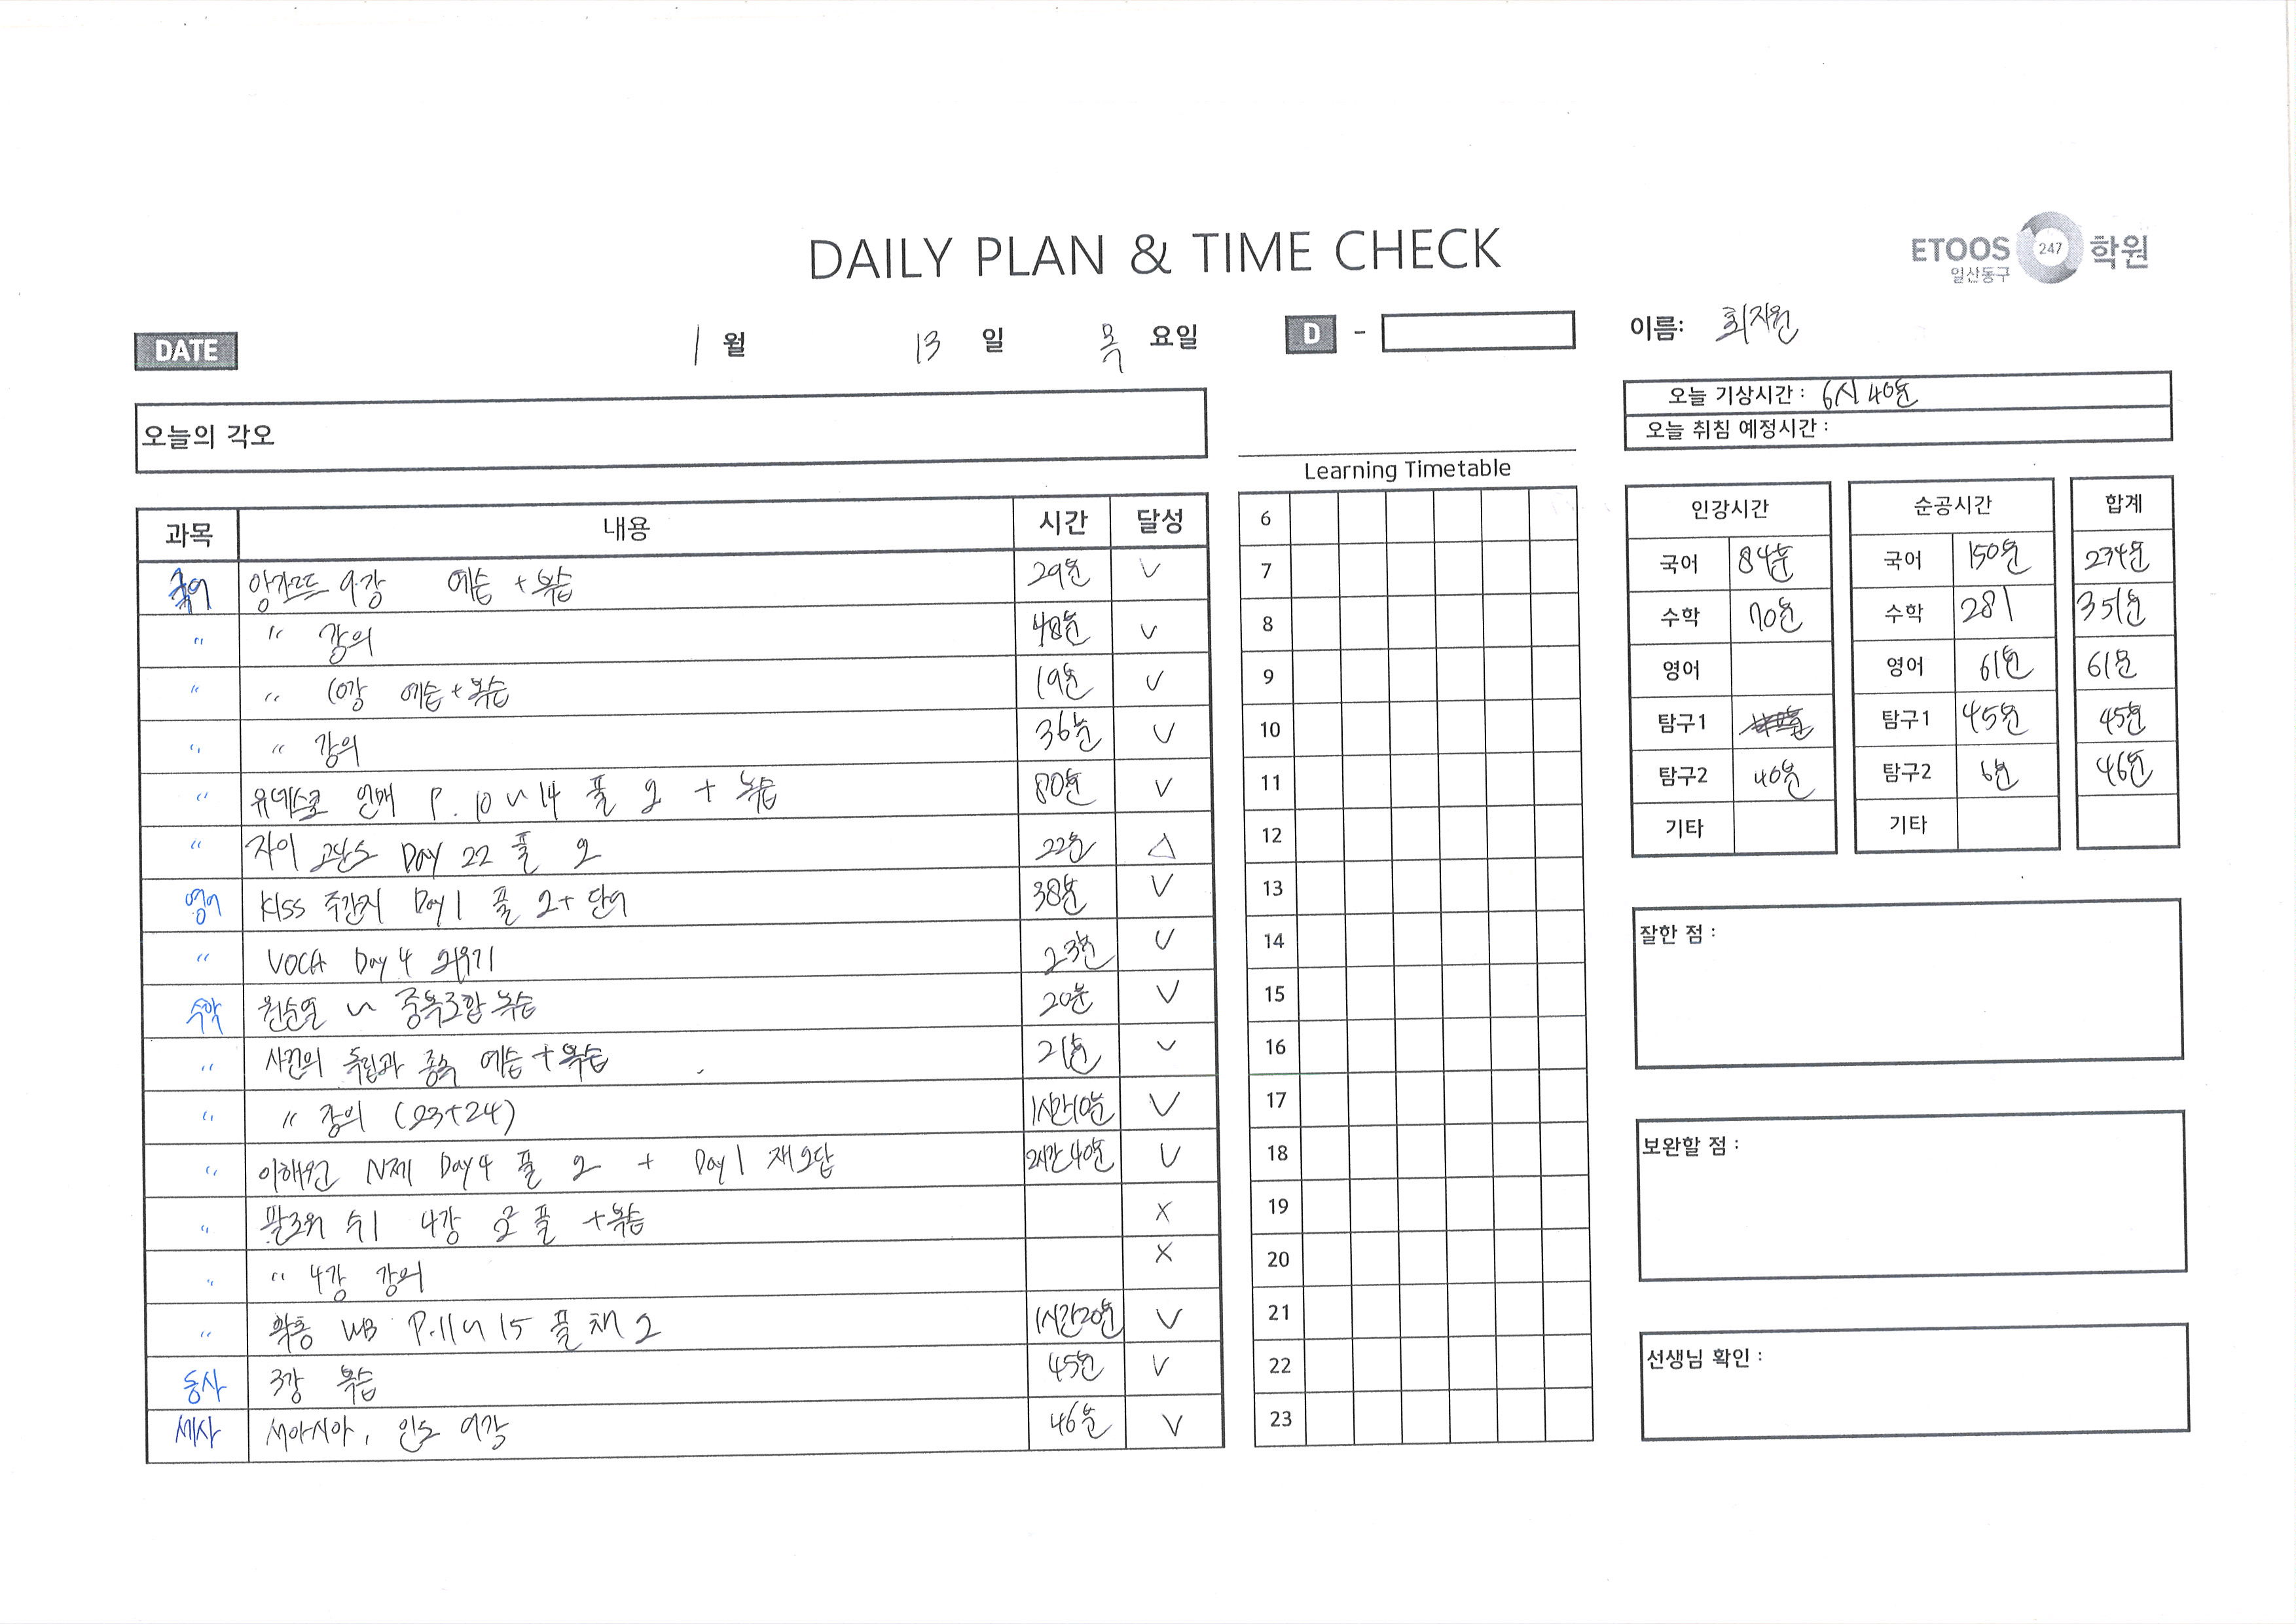 DAILY PLAN & TIME CHECK
ETOOS 247 학원
일산동구
DATE 1 월 13 일 목 요일 D -
이름: 최지원
오늘의 각오
오늘 기상시간 : 6시 40분
오늘 취침 예정시간 :
과목 내용 시간 달성
국어 앙가르드 9강 예습 + 복습 29분 V
" " 강의 48분 V
" " 10강 예습 + 복습 19분 V
" " 강의 36분 V
" 유네스코 언매 P. 10 ~ 14 풀 2 + 복습 80분 V
" 자이 고난도 Day 22 풀 2 22분 △
영어 KISS 주간지 Day 1 풀 2 + 단어 38분 V
" VOCA Day 4 외우기 23분 V
수학 원순열 ~ 중복조합 복습 20분 V
" 사건의 독립과 종속 예습 + 복습 21분 V
" " 강의 (23+24) 1시간10분 V
" 이해원 N제 Day 4 풀 2 + Day 1 재오답 2시간 40분 V
" 수1 4강 풀 + 복습 X
" " 4강 강의 X
" 확통 WB P.11 ~ 15 풀 채 2 1시간20분 V
동사 3강 복습 45분 V
세사 서아시아, 인도 여강 46분 V
Learning Timetable
6
7
8
9
10
11
12
13
14
15
16
17
18
19
20
21
22
23
인강시간 순공시간 합계
국어 84분 국어 150분 234분
수학 70분 수학 281 351분
영어 영어 61분 61분
탐구1 탐구1 45분 45분
탐구2 40분 탐구2 6분 46분
기타 기타
잘한 점 :
보완할 점 :
선생님 확인 :